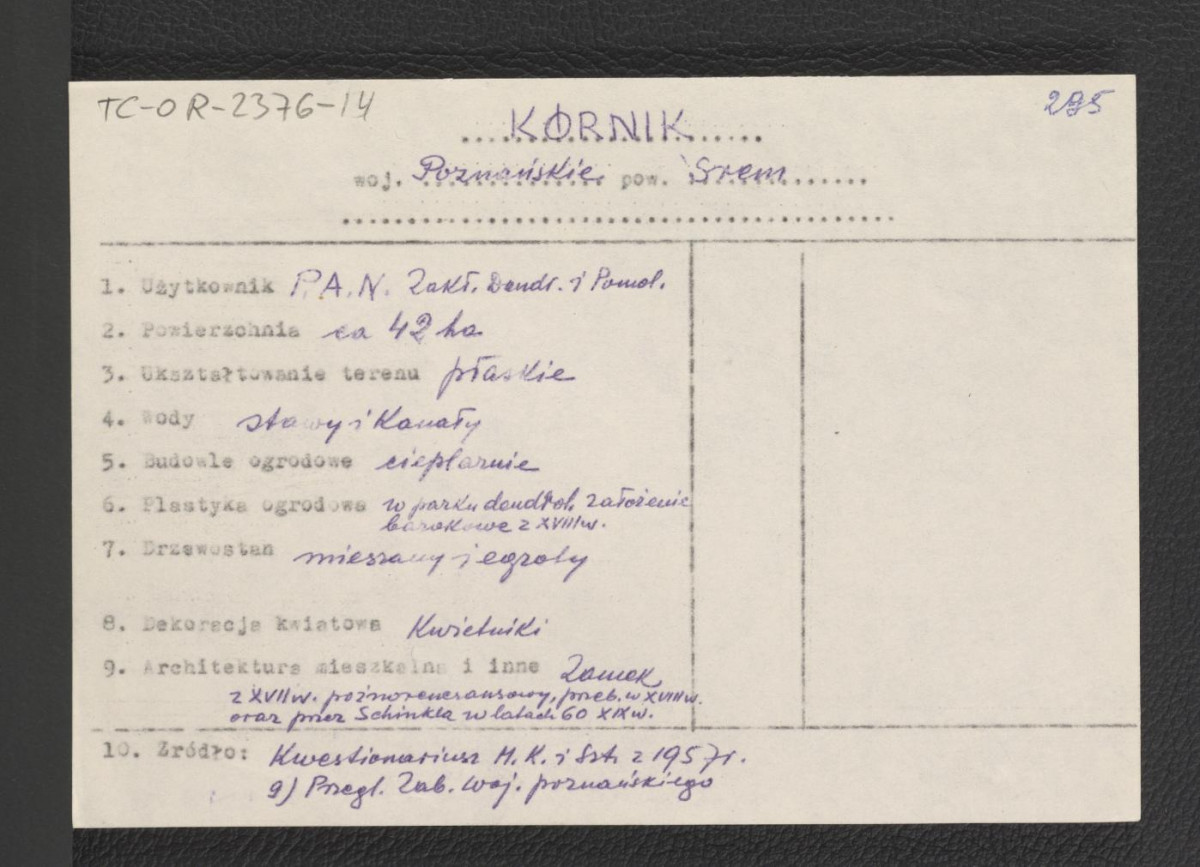 TC-OR-2376-14
295
KÓRNIK
woj. Poznańskie pow. Śrem
1. Użytkownik P.A.N. Zakł. Dendr. i Pomol.
2. Powierzchnia ca 42 ha
3. Ukształtowanie terenu płaskie
4. Wody stawy i Kanały
5. Budowle ogrodowe cieplarnie
6. Plastyka ogrodowa w parku dendrol. założenie
barokowe z XVIII w.
7. Drzewostan mieszany i egzoty
8. Dekoracja kwiatowa Kwietniki
9. Architektura mieszkalna i inne Zamek
z XVII w. poźnorenesansowy, przeb. w XVIII w.
oraz przez Schinkla w latach 60 XIX w.
10. Zródło: Kwestionariusz M. K. i Szt. z 1957 r.
9) Przegl. Zab. woj. poznańskiego